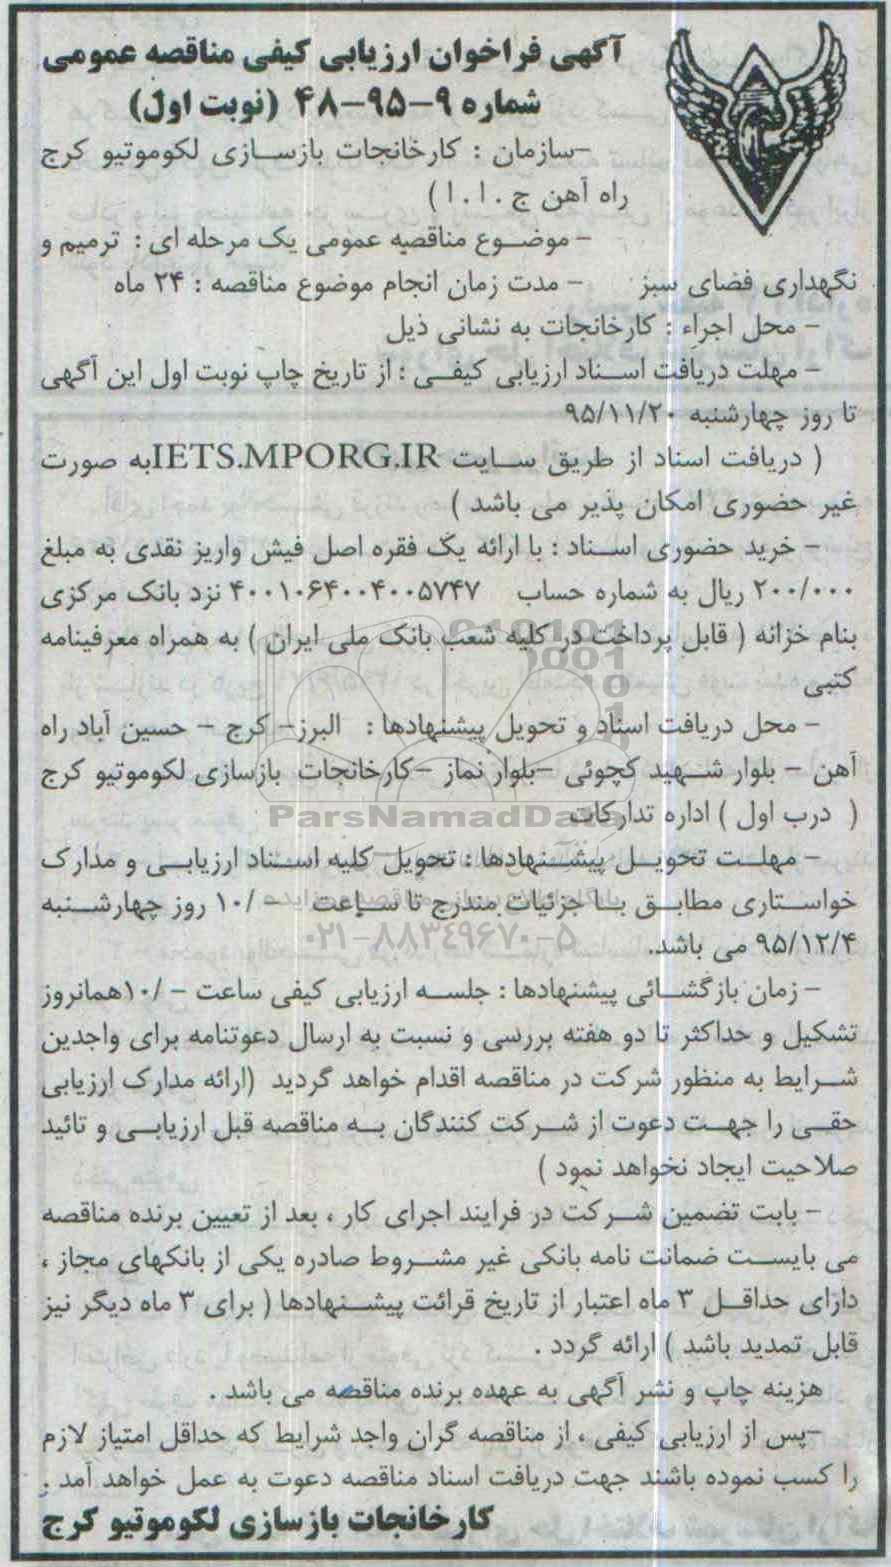 آگهی فراخوان ارزیابی کیفی مناقصه عمومی
شماره ۹-۹۵-۴۸ (نوبت اول)
-سازمان : کارخانجات بازسازی لکوموتیو کرج
راه آهن ج . ا . ا )
- موضوع مناقصه عمومی یک مرحله ای : ترمیم و
نگهداری فضای سبز - مدت زمان انجام موضوع مناقصه : ۲۴ ماه
- محل اجراء : کارخانجات به نشانی ذیل
- مهلت دریافت اسناد ارزیابی کیفی : از تاریخ چاپ نوبت اول این آگهی
تا روز چهارشنبه ۹۵/۱۱/۲۰
( دریافت اسناد از طریق سایت IETS.MPORG.IR به صورت
غیر حضوری امکان پذیر می باشد )
- خرید حضوری اسناد : با ارائه یک فقره اصل فیش واریز نقدی به مبلغ
۲۰۰/۰۰۰ ریال به شماره حساب ۴۰۰۱۰۶۴۰۰۴۰۰۵۷۴۷ نزد بانک مرکزی
بنام خزانه ( قابل پرداخت در کلیه شعب بانک ملی ایران ) به همراه معرفینامه
کتبی
- محل دریافت اسناد و تحویل پیشنهادها : البرز- کرج - حسین آباد راه
آهن - بلوار شهید کچوئی -بلوار نماز -کارخانجات بازسازی لکوموتیو کرج
( درب اول ) اداره تدارکات
ParsNamadData
- مهلت تحویل پیشنهادها : تحویل کلیه اسناد ارزیابی و مدارک
خواستاری مطابق با جزئیات مندرج تا ساعت -/۱۰ روز چهارشنبه
۹۵/۱۲/۴ می باشد.
۰۲۱-۸۸۳۴۹۶۷۰-۵
- زمان بازگشائی پیشنهادها : جلسه ارزیابی کیفی ساعت -/۱۰همانروز
تشکیل و حداکثر تا دو هفته بررسی و نسبت به ارسال دعوتنامه برای واجدین
شرایط به منظور شرکت در مناقصه اقدام خواهد گردید (ارائه مدارک ارزیابی
حقی را جهت دعوت از شرکت کنندگان به مناقصه قبل ارزیابی و تائید
صلاحیت ایجاد نخواهد نمود )
- بابت تضمین شرکت در فرایند اجرای کار ، بعد از تعیین برنده مناقصه
می بایست ضمانت نامه بانکی غیر مشروط صادره یکی از بانکهای مجاز ،
دارای حداقل ۳ ماه اعتبار از تاریخ قرائت پیشنهادها ( برای ۳ ماه دیگر نیز
قابل تمدید باشد ) ارائه گردد .
هزینه چاپ و نشر آگهی به عهده برنده مناقصه می باشد .
-پس از ارزیابی کیفی ، از مناقصه گران واجد شرایط که حداقل امتیاز لازم
را کسب نموده باشند جهت دریافت اسناد مناقصه دعوت به عمل خواهد آمد .
کارخانجات بازسازی لکوموتیو کرج